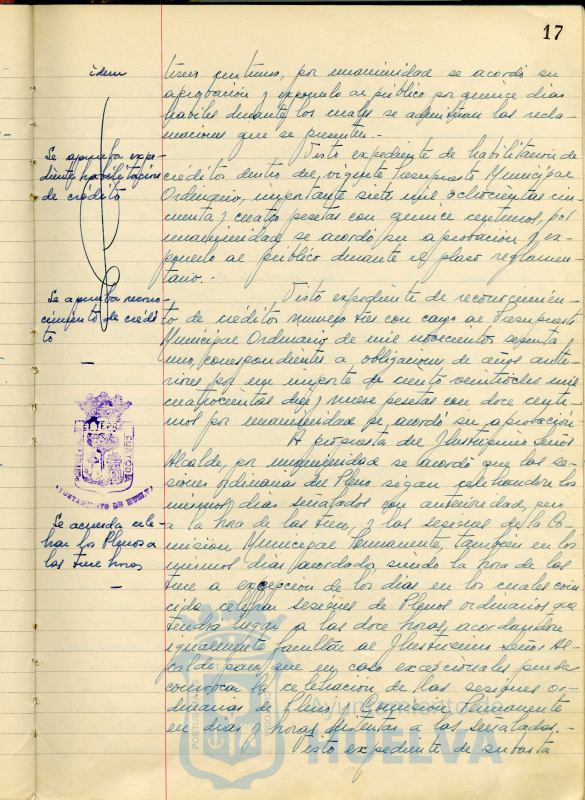 17
idem
treinta céntimos, por unanimidad se acordó su
aprobación y exponerlo al público por quince días
hábiles durante los cuales se admitirían las recla-
maciones que se presenten.-
Se aprueba expe-
diente habilitación
de crédito
Visto expediente de habilitación de
créditos dentro del vigente Presupuesto Municipal
Ordinario, importante siete mil ochocientas cin-
cuenta y cuatro pesetas con quince céntimos, por
unanimidad se acordó su aprobación y ex-
ponerlo al público durante el plazo reglamen-
tario.-
Se aprueba recono-
cimiento de crédi-
to
Visto expediente de reconocimien-
to de créditos número tres con cargo al Presupuesto
Municipal Ordinario de mil novecientos setenta y
uno, correspondientes a obligaciones de años ante-
riores por un importe de ciento veintiocho mil
cuatrocientas diez y nueve pesetas con doce cénti-
mos por unanimidad se acordó su aprobación.
A propuesta del Ilustrísimo Señor
Alcalde, por unanimidad se acordó que las se-
siones ordinarias del Pleno sigan celebrándose los
mismos días señalados con anterioridad, pero
Se acuerda cele-
brar los Plenos a
las trece horas
a la hora de las trece, y las sesiones de la Co-
misión Municipal Permanente, también en los
mismos días acordados, siendo la hora de las
trece a excepción de los días en los cuales coin-
cida celebrar sesiones de Plenos ordinarios que
tendrá lugar a las doce horas, acordándose
igualmente facultar al Ilustrísimo Señor Al-
calde para que en caso excepcionales pueda
convocar la celebración de las sesiones or-
dinarias de Pleno y Comisión Permanente
en días y horas distintas a las señaladas.-
Visto expediente de subasta
AYUNTAMIENTO DE HUELVA
Ayuntamiento de
HUELVA